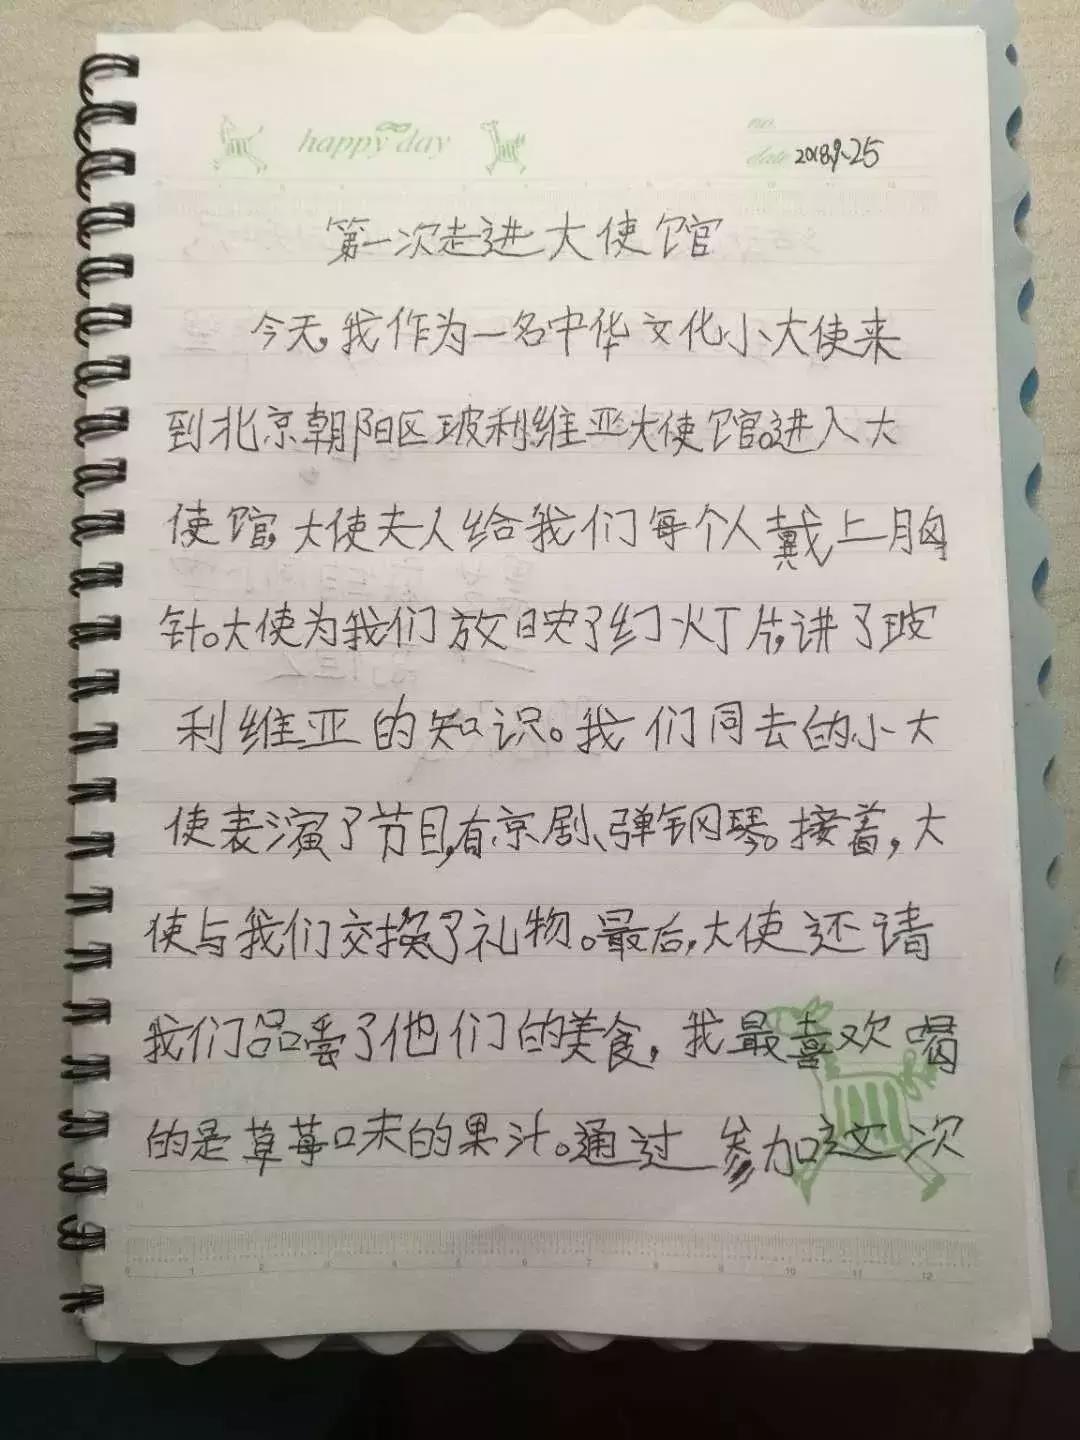 happy day
no.
date 2018.9.25
第一次走进大使馆
今天,我作为一名中华文化小大使来
到北京朝阳区玻利维亚大使馆。进入大
使馆,大使夫人给我们每个人戴上胸
针。大使为我们放映了幻灯片,讲了玻
利维亚的知识。我们同去的小大
使表演了节目,有京剧、弹钢琴。接着,大
使与我们交换了礼物。最后,大使还请
我们品尝了他们的美食,我最喜欢喝
的是草莓口味的果汁。通过参加这次
0 1 2 3 4 5 6 7 8 9 10 11 12